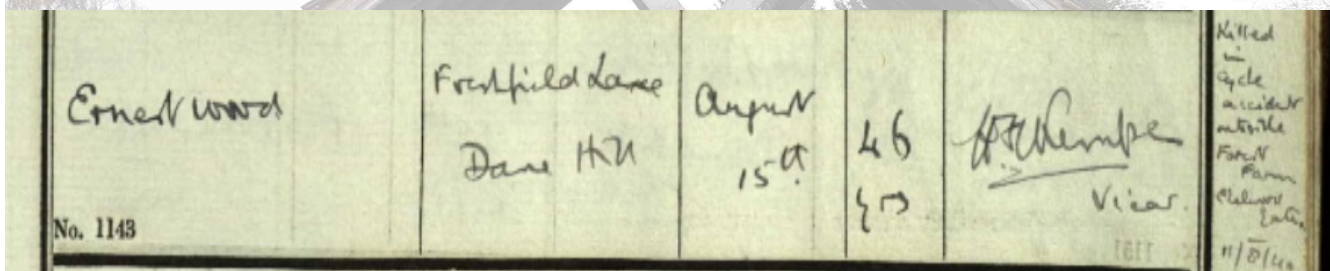 Ernest Wood
No. 1143
Freshfield Lane
Dane Hill
August
15th.
46
yrs
Vicar.
Killed
in
Cycle
accident
outside
Forest
Farm